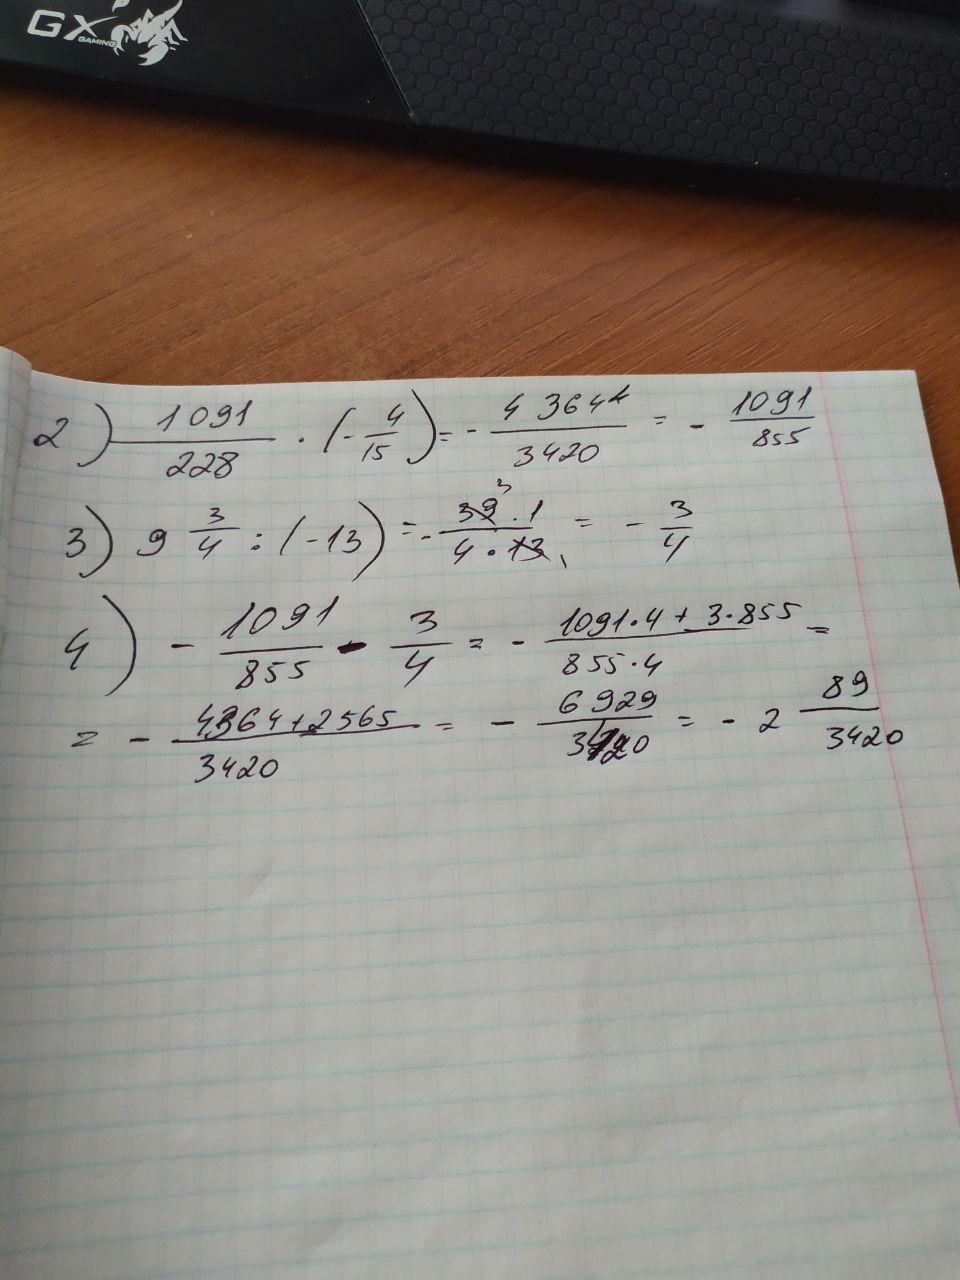 GX GAMING
2) 1091/228 · (-4/15) = - 4364/3420 = - 1091/855
3) 9 3/4 : (-13) = - 39·1/4·13 = - 3/4
4) - 1091/855 - 3/4 = - 1091·4 + 3·855/855·4 =
= - 4364+2565/3420 = - 6929/3420 = - 2 89/3420